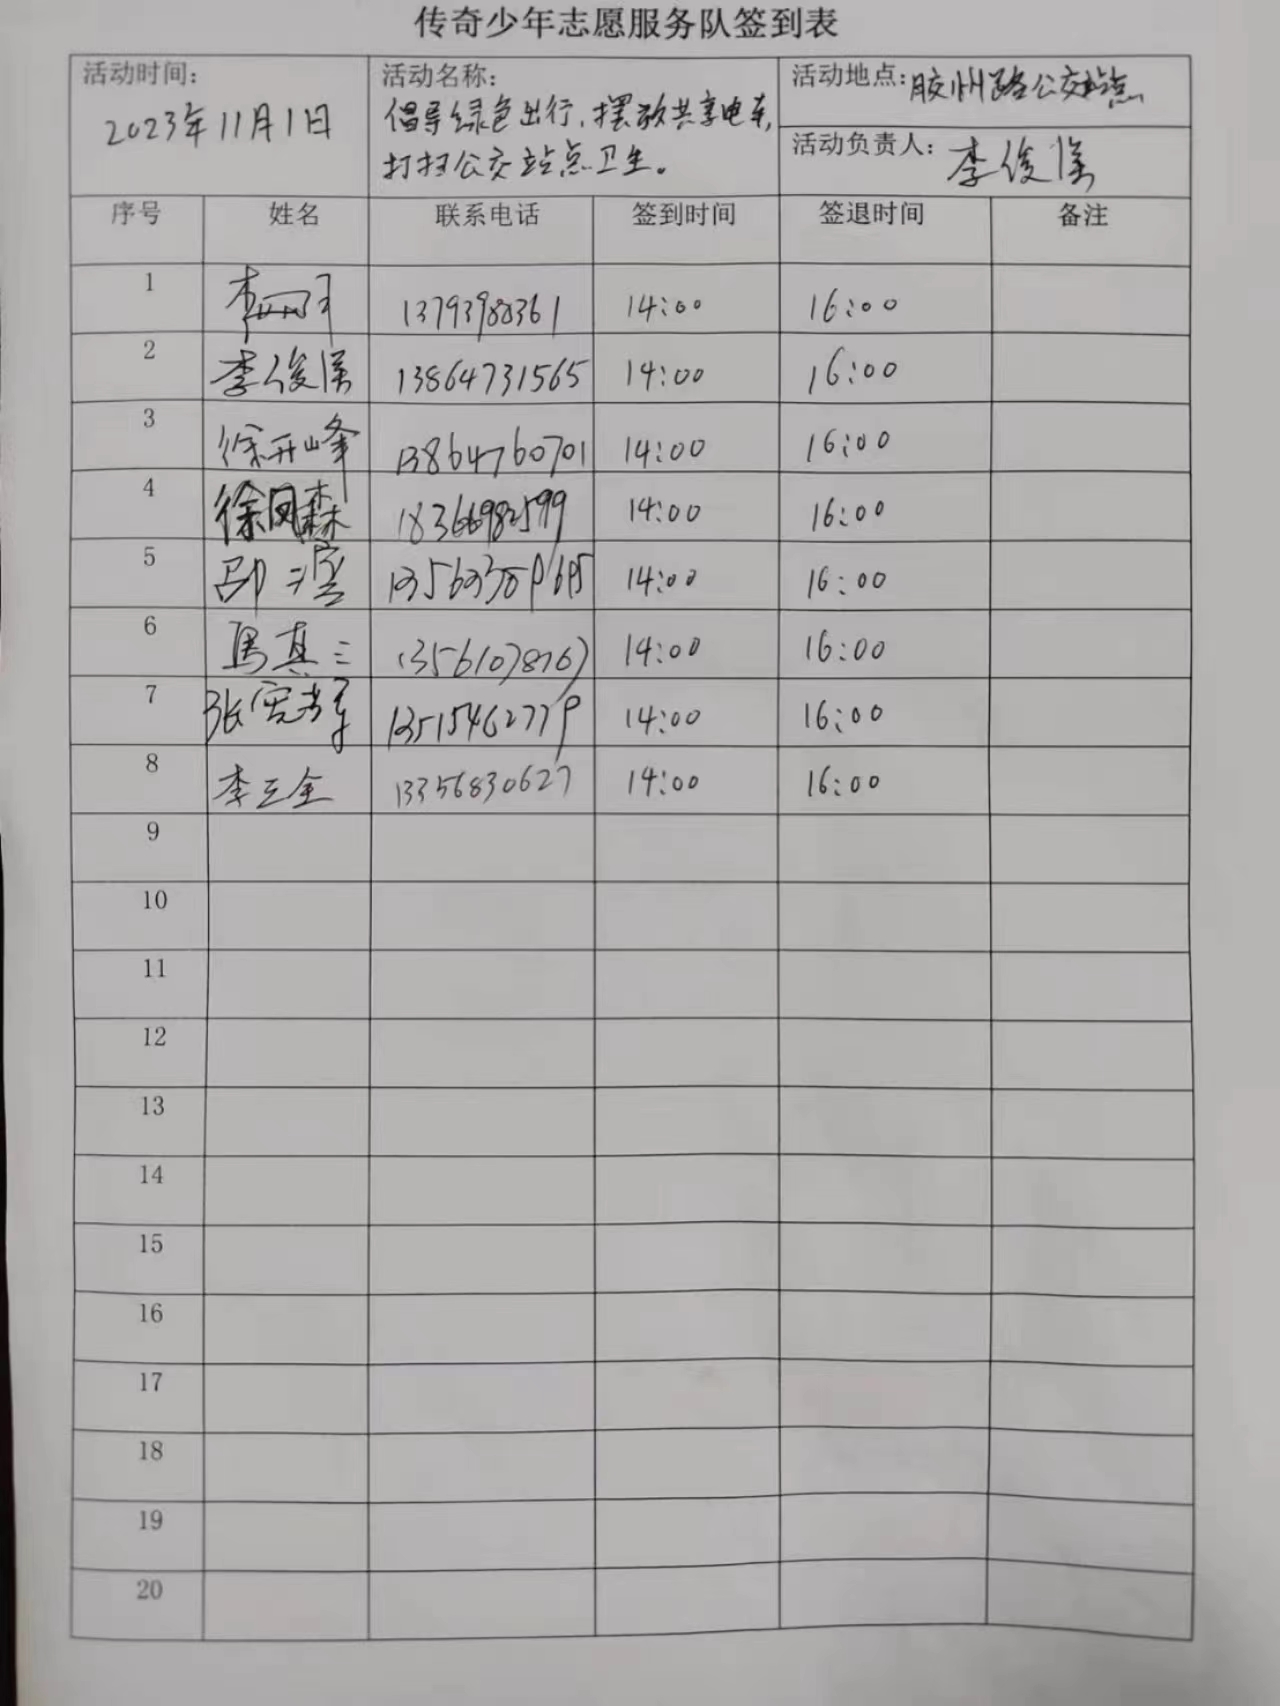 传奇少年志愿服务队签到表
活动时间：
2023年11月1日
活动名称：
倡导绿色出行，摆放共享电车，
打扫公交站点卫生。
活动地点：胶州路公交站点
活动负责人：李俊溪
序号 姓名 联系电话 签到时间 签退时间 备注
1 14:00 16:00
2 李俊溪 13864731565 14:00 16:00
3 徐开峰 13864760701 14:00 16:00
4 徐凤森 18366982599 14:00 16:00
5 14:00 16:00
6 14:00 16:00
7 13515462779 14:00 16:00
8 李三全 13356830627 14:00 16:00
9
10
11
12
13
14
15
16
17
18
19
20